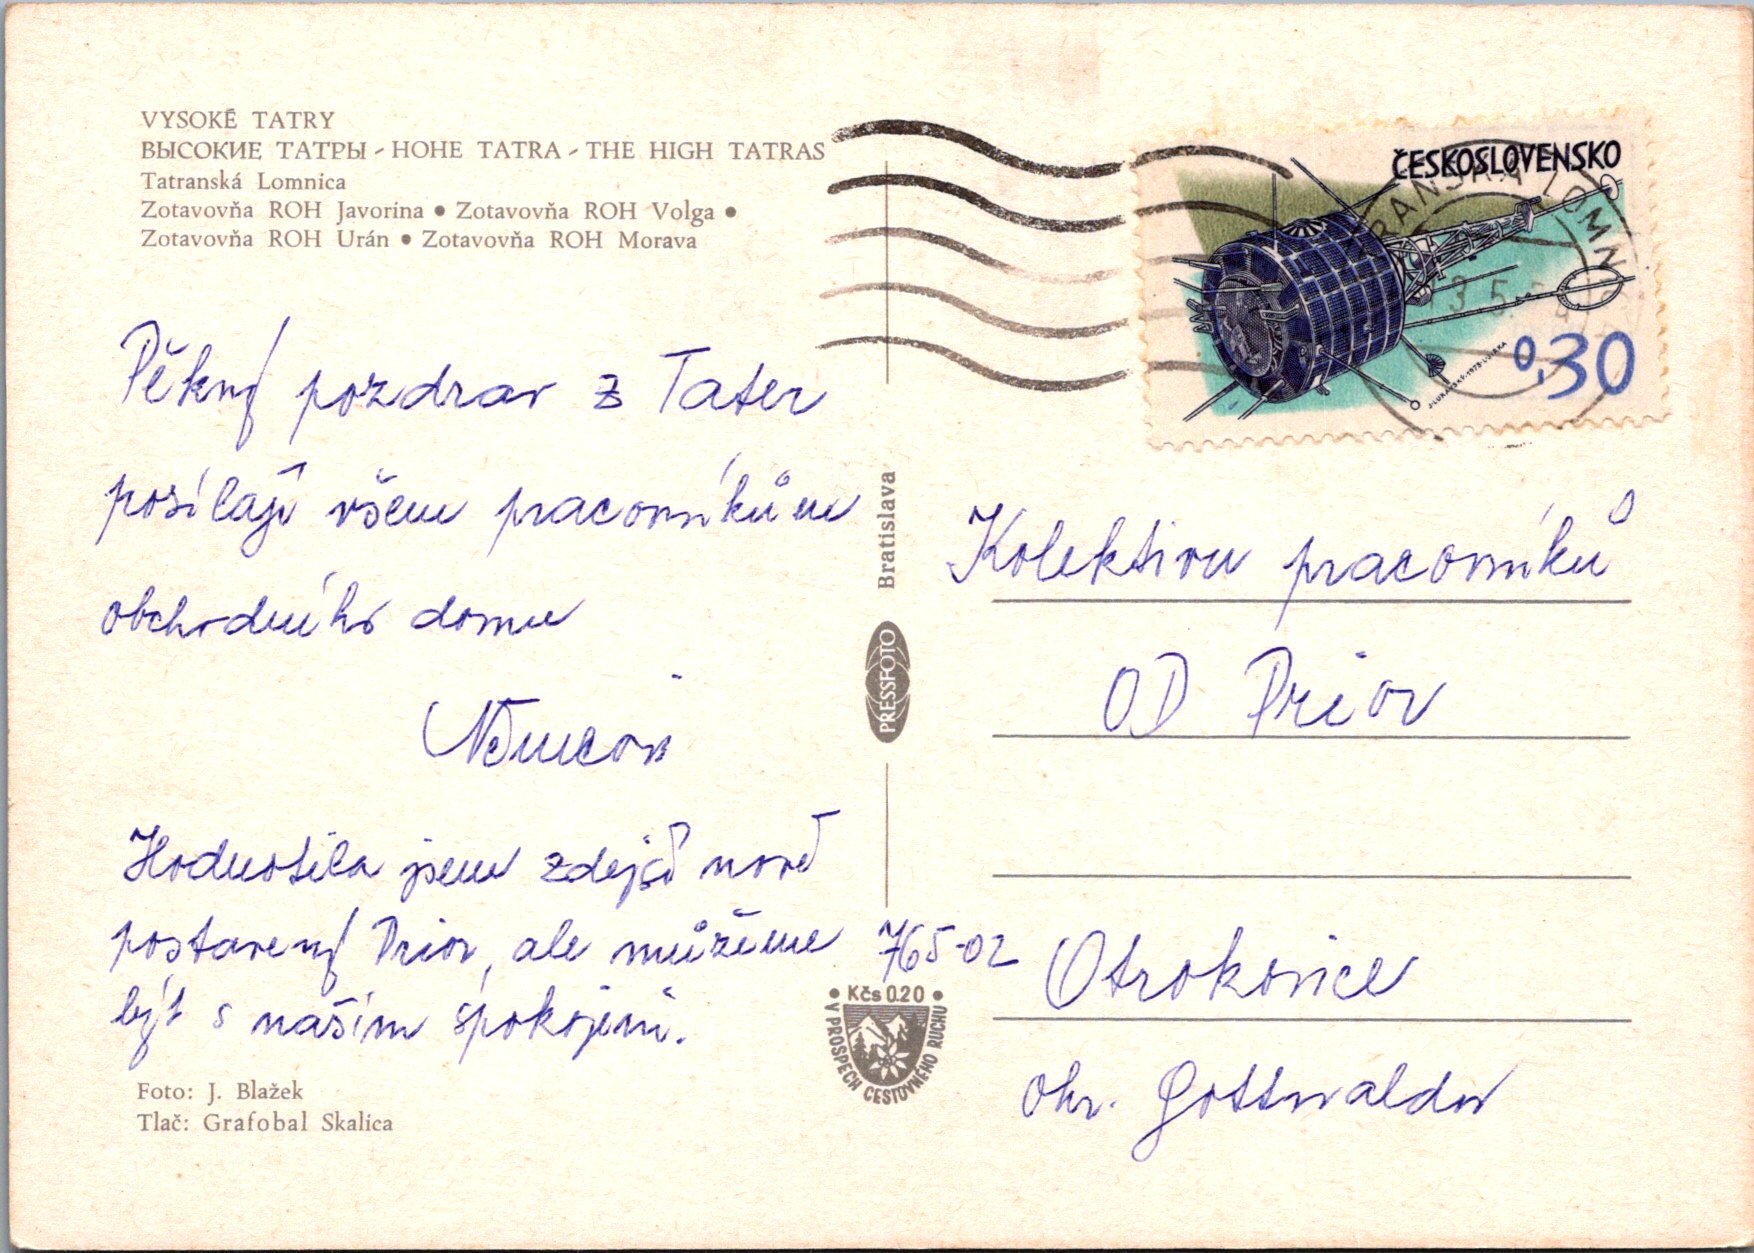 VYSOKÉ TATRY
ВЫСОКИЕ ТАТРЫ - HOHE TATRA - THE HIGH TATRAS
Tatranská Lomnica
Zotavovňa ROH Javorina • Zotavovňa ROH Volga •
Zotavovňa ROH Urán • Zotavovňa ROH Morava
Pěkný pozdrav z Tater
posílají všem pracovníkům
obchodního domu
Němcovi
Hodnotila jsem zdejší nově
postavený Prior, ale můžeme
být s naším spokojeni.
Foto: J. Blažek
Tlač: Grafobal Skalica
Bratislava
PRESSFOTO
• Kčs 0.20 •
V PROSPECH CESTOVNÉHO RUCHU
ČESKOSLOVENSKO
0,30
Kolektivu pracovníků
OD Prior
765-02 Otrokovice
okr. Gottwaldov